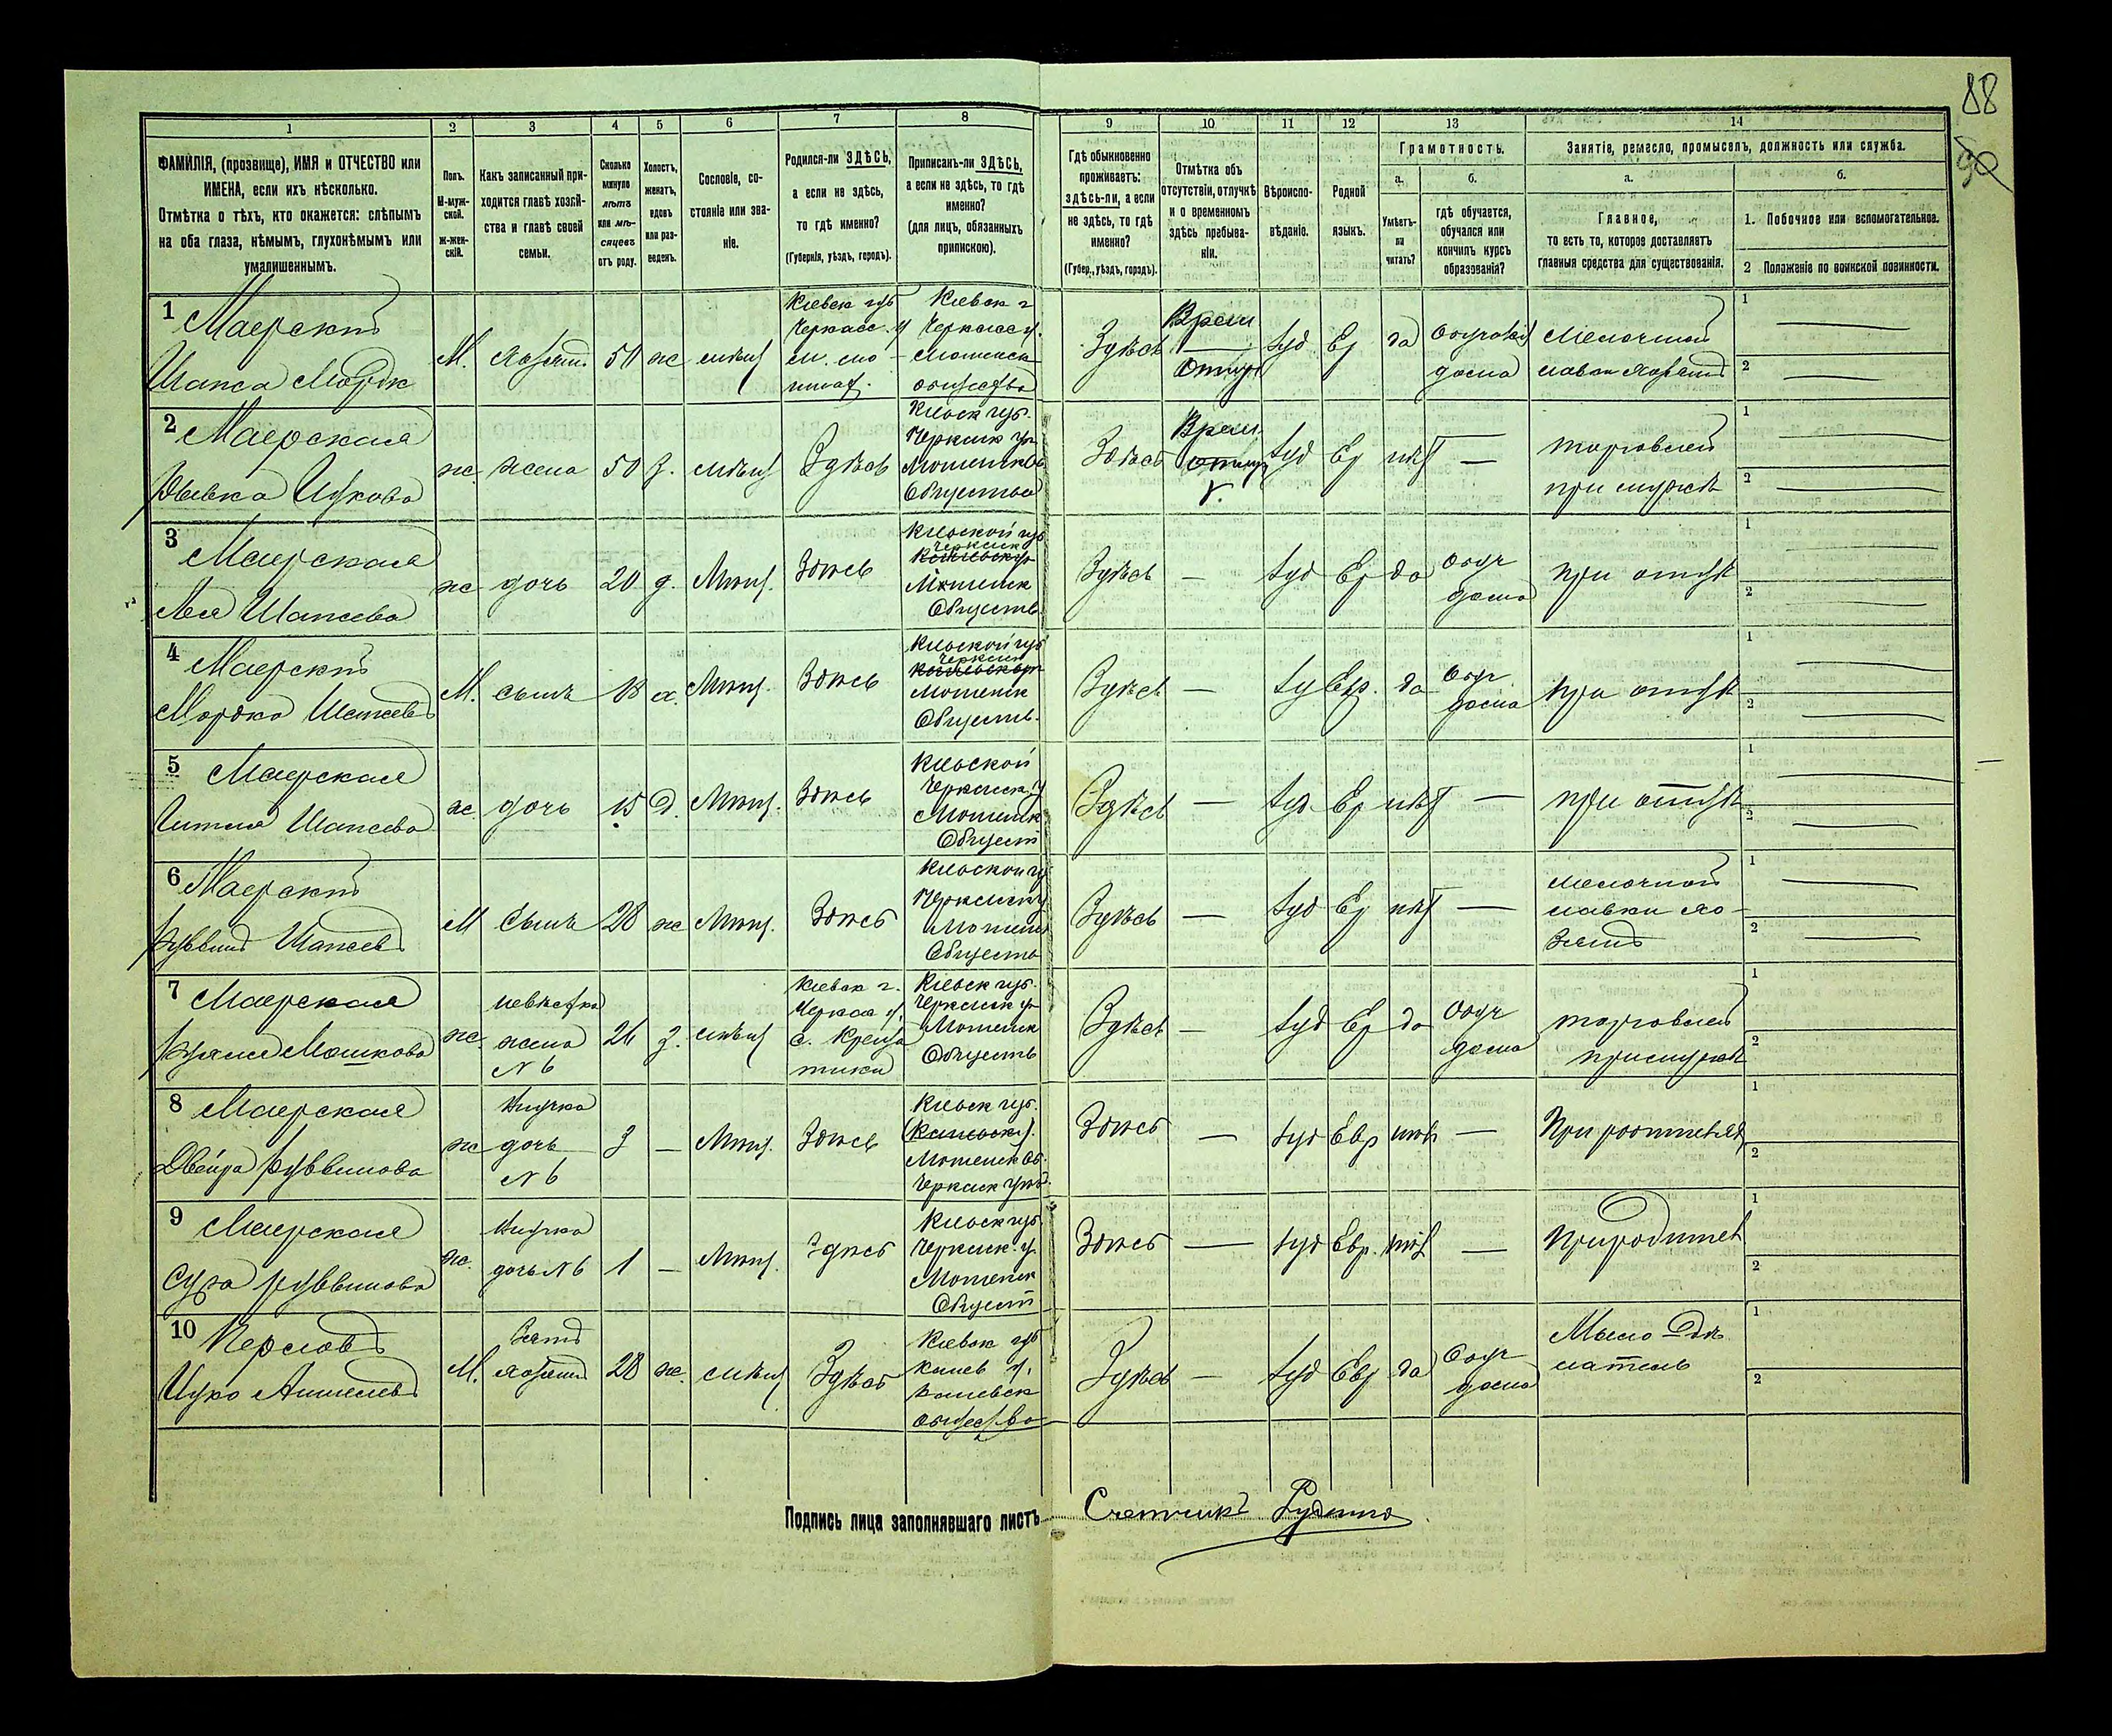 88
90
1
2
3
4
5
6
7
8
9
10
11
12
13
14
ФАМИЛІЯ, (прозвище), ИМЯ и ОТЧЕСТВО или
ИМЕНА, если ихъ нѣсколько.
Отмѣтка о тѣхъ, кто окажется: слѣпымъ
на оба глаза, нѣмымъ, глухонѣмымъ или
умалишеннымъ.
Полъ.
М-муж-
ской.
Ж-жен-
скій.
Какъ записанный при-
ходится главѣ хозяй-
ства и главѣ своей
семьи.
Сколько
минуло
лѣтъ
или мѣ-
сяцевъ
отъ роду.
Холостъ,
женатъ,
вдовъ
или раз-
веденъ.
Сословіе, со-
стояніе или зва-
ніе.
Родился-ли ЗДѢСЬ,
а если не здѣсь,
то гдѣ именно?
(Губернія, уѣздъ, городъ).
Приписанъ-ли ЗДѢСЬ,
а если не здѣсь, то гдѣ
именно?
(для лицъ, обязанныхъ
припискою).
Гдѣ обыкновенно
проживаетъ:
здѣсь-ли, а если
не здѣсь, то гдѣ
именно?
(Губер., уѣздъ, городъ).
Отмѣтка объ
отсутствіи, отлучкѣ
и о временномъ
здѣсь пребыва-
ніи.
Вѣроиспо-
вѣданіе.
Родной
языкъ.
Грамотность.
а.
Умѣетъ-
ли
читать?
б.
гдѣ обучается,
обучался или
кончилъ курсъ
образованія?
Занятіе, ремесло, промыселъ, должность или служба.
а.
Главное,
то есть то, которое доставляетъ
главныя средства для существованія.
б.
1. Побочное или вспомогательное.
2 Положеніе по воинской повинности.
1 Маерскій
Шапса Мордк
М. хозяин 50 ж мѣщ
Киевск губ
Черкасс. у
м. мо-
шнах.
Киевск г
Черкасск у.
Мошенск
общества
Здѣсь
Врем
Отлуч
Iуд Ев да
дома
Мелочной
лавки хозяинъ
1
2
2 Маерская
Ицкова
ж. жена 50 з. мѣщ Здѣсь
Киевск губ.
Черкаск у.
Мошенск
Общества
Здѣсь
Врем
Iуд Ев нѣт —
торговлей
при мужѣ
1
2
3 Маерская
Лея Шапсева
ж дочь 20 д. Мѣщ. Здѣсь
Киевской губ
Черкаск
Мошенск
Обществ.
Здѣсь — Iуд Ев да
Обуч
дома
при отцѣ
1
2
4 Маерскій
Мордко Шапсев
М. сынъ 18 х. Мѣщ. Здѣсь
Киевской губ
Черкаск
Мошенск
Обществ.
Здѣсь — Iуд Евр. да
Обуч
дома
при отцѣ
1
2
5 Маерская
Гитля Шапсева
ж. дочь 15 д. Мѣщ. Здѣсь
Киевской
Черкаск у
Мошенск
Общест
Здѣсь — Iуд Ев нѣт — при отцѣ
1
2
6 Маерскій
Рувви́нъ Шапсев
М Сынъ 28 ж Мѣщ. Здѣсь
Киевской гу
Черкаск у
Мошенск
Обществ
Здѣсь — Iуд Ев нѣт —
мелочной
лавки хо-
зяинъ
1
2
7 Маерская
Мошкова
ж.
невѣстка
жена
N 6
26 з. мѣщ
Киевск г.
Черкас у.
с. Креща
тики
Киевск губ.
Черкаск у
Мошенск
Обществ
Здѣсь — Iуд Ев да
Обуч
дома
торговлей
при мужѣ
1
2
8 Маерская
Двейра Руввинова
ж
Внучка
дочь
N 6
3 — Мѣщ. Здѣсь
Киевск губ.
Мошенск Об.
Черкаск уѣз.
Здѣсь — Iуд Евр нѣт — При родителях
1
2
9 Маерская
Сура Руввинова
ж.
Внучка
дочь N 6
1 — Мѣщ. Здѣсь
Киевск губ
Черкаск. у.
Мошенск
Общест
Здѣсь — Iуд Евр. нѣт — При родител
1
2
10 Перлов
Ицко Аншелев
М.
Зять
хозяина
28 ж. мѣщ Здѣсь
Киевск губ
Канев у.
Каневск
общества
Здѣсь — Iуд Евр да
Обуч
дома
1
2
Подпись лица заполнявшаго листъ
Счетчикъ